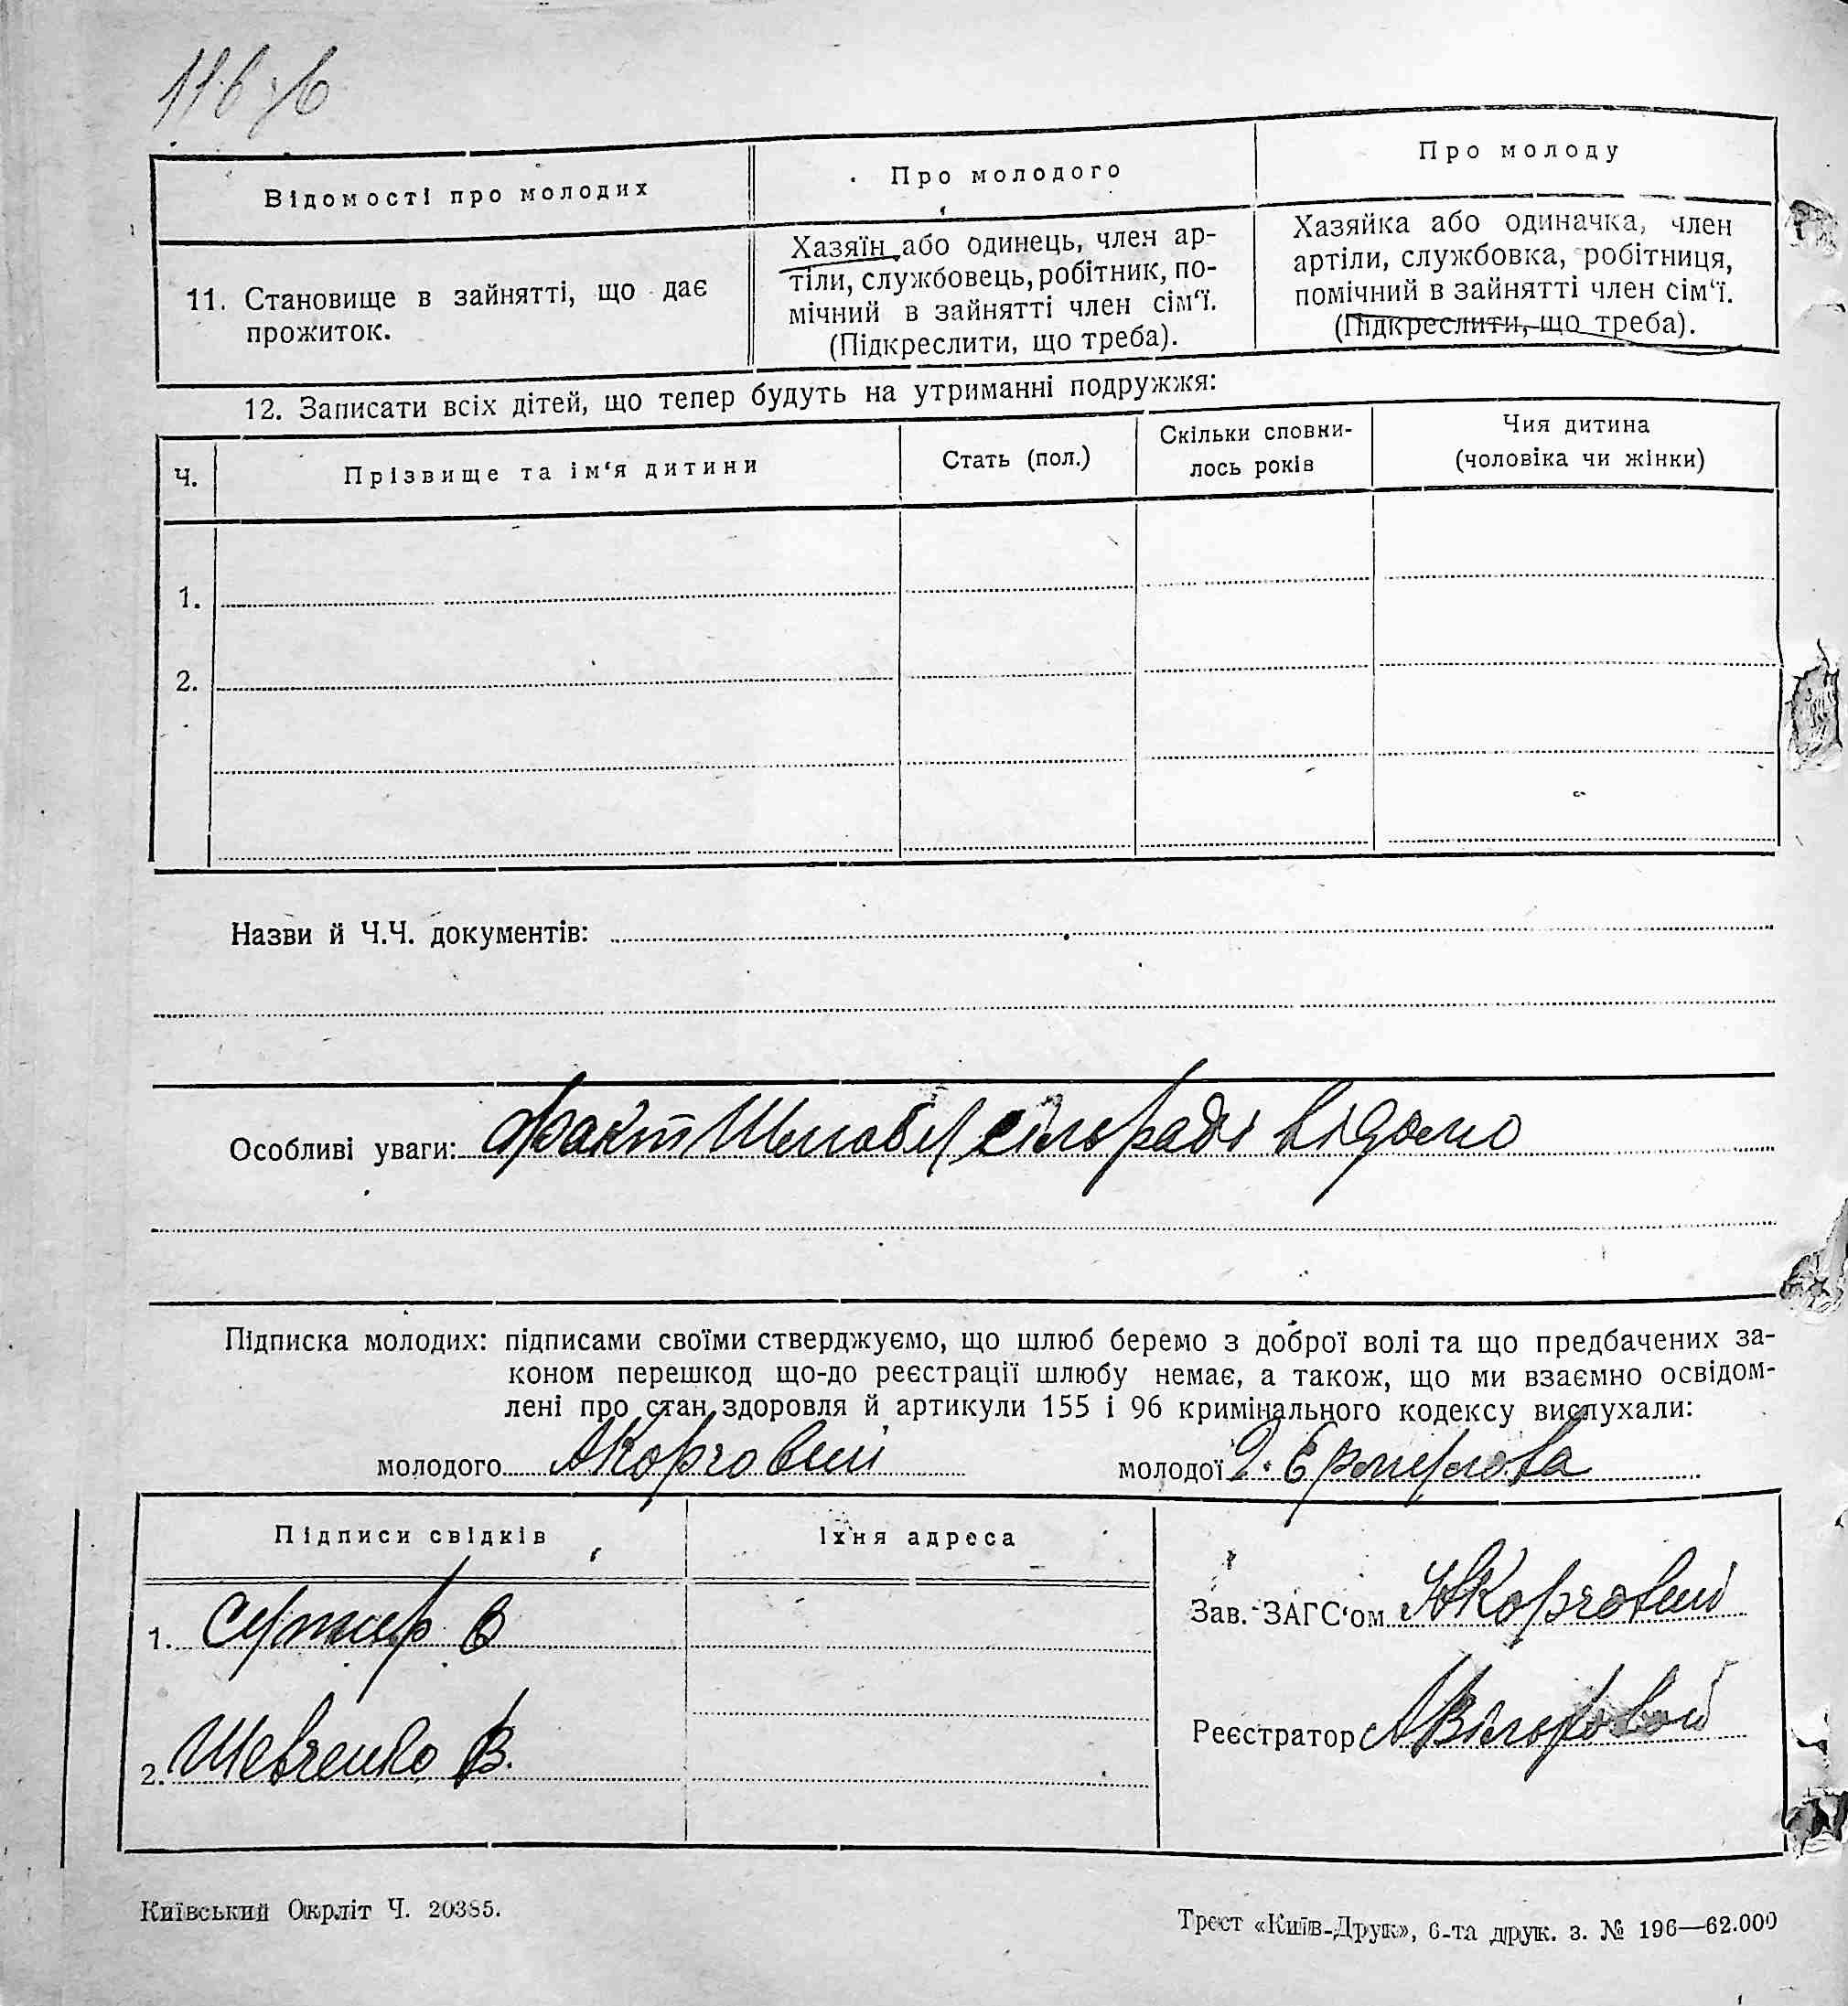 Відомості про молодих
Про молодого
Про молоду
11. Становище в зайнятті, що дає
прожиток.
Хазяїн або одинець, член ар-
тіли, службовець, робітник, по-
мічний в зайнятті член сім‘ї.
(Підкреслити, що треба).
Хазяйка або одиначка, член
артіли, службовка, робітниця,
помічний в зайнятті член сім‘ї.
(Підкреслити, що треба).
12. Записати всіх дітей, що тепер будуть на утриманні подружжя:
Ч.
Прізвище та ім‘я дитини
Стать (пол.)
Скільки сповни-
лось років
Чия дитина
(чоловіка чи жінки)
1.
2.
Назви й Ч.Ч. документів:
Особливі уваги: Факт сільраді відомо
Підписка молодих: підписами своїми стверджуємо, що шлюб беремо з доброї волі та що предбачених за-
коном перешкод що-до реєстрації шлюбу немає, а також, що ми взаємно освідом-
лені про стан здоровля й артикули 155 і 96 кримінального кодексу вислухали:
молодого АКорговий молодої
Підписи свідків
Їхня адреса
1.
2. Шевченко В.
Зав. ЗАГС‘ом
Реєстратор
Київський Окрліт Ч. 20385.
Трест «Київ-Друк», 6-та друк. з. № 196—62.000